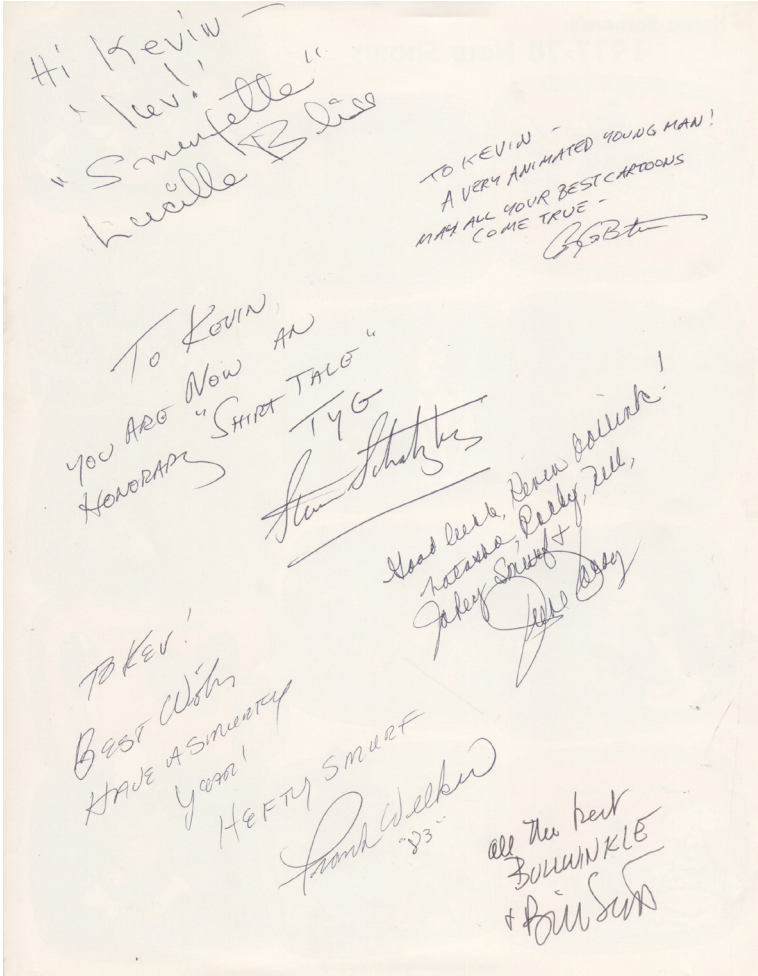 Hi Kevin -
Kev!
"Smurfette"
Lucille Bliss
TO KEVIN -
A VERY ANIMATED YOUNG MAN!
MAY ALL YOUR BEST CARTOONS
COME TRUE -
TO KEVIN,
YOU ARE NOW AN
HONORARY "SHIRT TALE"
TYG
Steve Schatzberg
Good luck, Kevin
Natasha, Rocky, Nell,
Jokey Smurf +
June Foray
TO KEV!
BEST Wishes
HAVE A SMURFY
YEAR!
HEFTY SMURF
Frank Welker
"83"
all the best
BULLWINKLE
+ Bill Scott
1977-78 New Shows